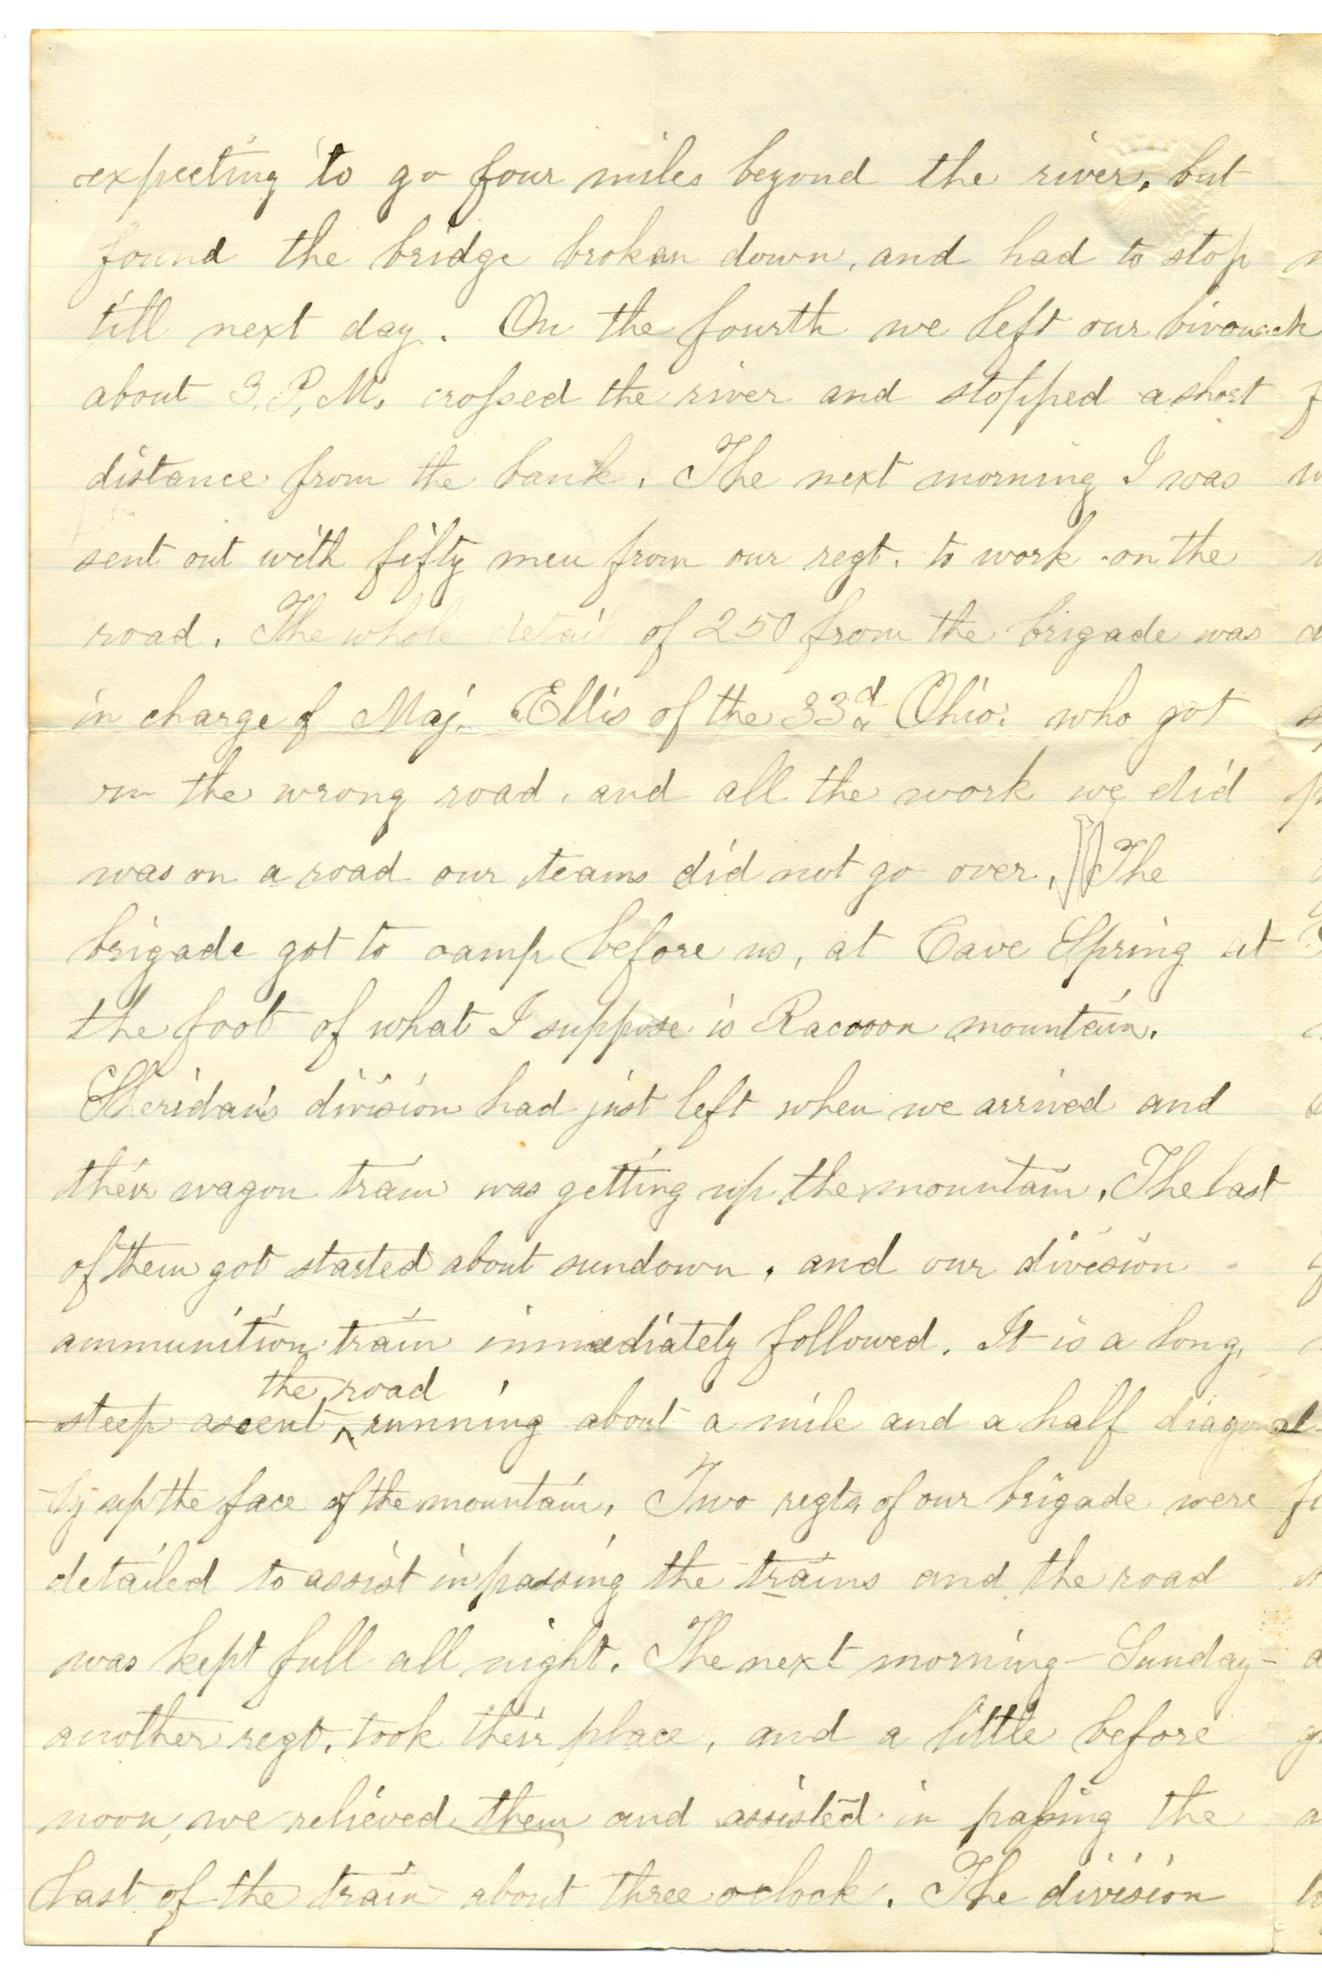 expecting to go four miles beyond the river, but
found the bridge broken down, and had to stop
till next day. On the fourth we left our bivouack
about 3. P. M. crossed the river and stopped a short
distance from the bank. The next morning I was
sent out with fifty men from our regt. to work on the
road. The whole detail of 250 from the brigade was
in charge of Maj. Ellis of the 33d Ohio. who got
on the wrong road, and all the work we did
was on a road our teams did not go over. The
brigade got to camp before us, at Cave Spring at
the foot of what I suppose is Racooon mountain.
Sheridan's division had just left when we arrived and
their wagon train was getting up the mountain. The last
of them got started about sundown, and our division
ammunition train immediately followed. It is a long,
the road
steep ascent, ^ running about a mile and a half diagonal-
ly up the face of the mountain. Two regts of our brigade were
detailed to assist in passing the trains and the road
was kept full all night. The next morning - Sunday -
another regt. took their place, and a little before
noon, we relieved them and assisted in passing the
last of the train about three oclock. The division